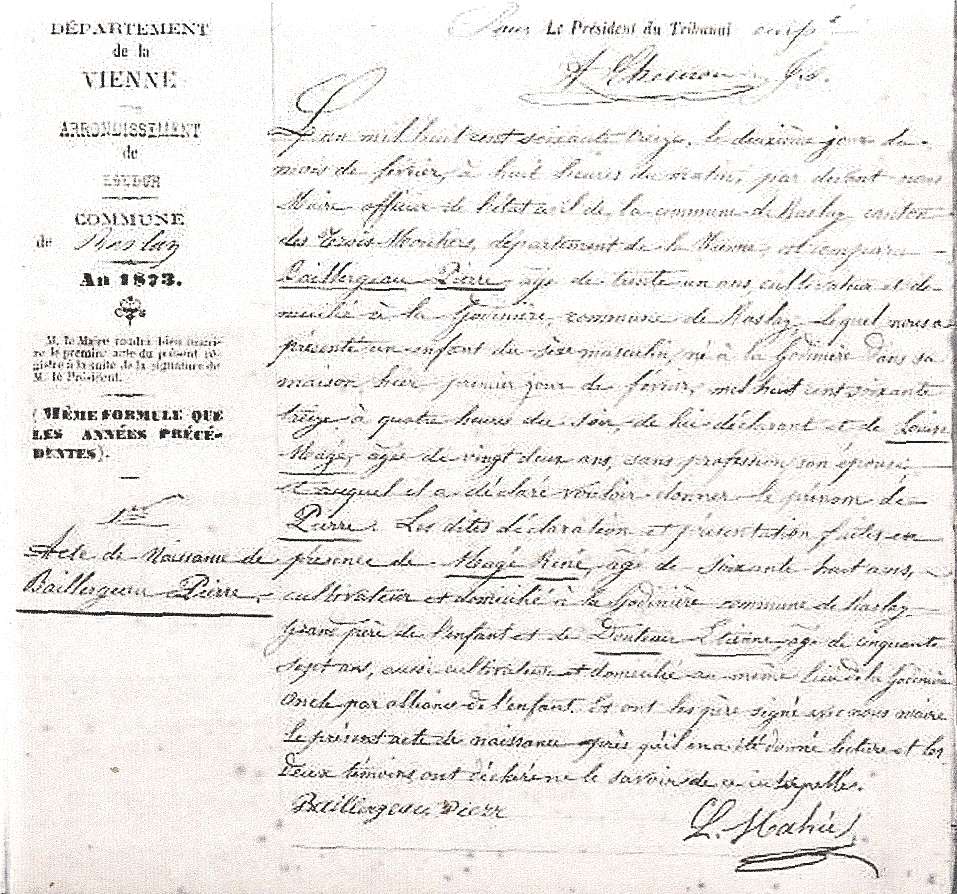 DÉPARTEMENT
de la
VIENNE
ARRONDISSEMENT
de
LOUDUN
COMMUNE
de Roslay
An 1873.
M. le Maire voudra bien inscrire
le premier acte du présent registre
à la suite de la signature de
M. le Président.
(MÊME FORMULE QUE
LES ANNÉES PRÉCÉ-
DENTES).
1er
Acte de Naissance de
Baillergeau Pierre.
Pour Le Président du Tribunal
L'an mil huit cent soixante treize, le deuxième jour du
mois de février, à huit heures du matin, par devant nous
Maire officier de l'état civil de la commune de Raslay canton
des Trois Moutiers, département de la Vienne, est comparu
Baillergeau Pierre, âgé de trente un ans, cultivateur et do-
micilié à la Godinière, commune de Raslay, lequel nous a
présenté un enfant du sexe masculin, né à la Godinière dans sa
maison hier premier jour de février, mil huit cent soixante
treize à quatre heures du soir, de lui déclarant et de Louise
Magé, âgée de vingt deux ans, sans profession son épouse
et auquel il a déclaré vouloir donner le prénom de
Pierre. Les dites déclaration et présentation faites en
présence de Magé René, âgé de soixante huit ans,
cultivateur et domicilié à la Godinière commune de Raslay
grand père de l'enfant et de Etienne, âgé de cinquante
sept ans, aussi cultivateur et domicilié au même lieu de la Godinière
oncle par alliance de l'enfant. Et ont les père signé avec nous maire
le présent acte de naissance après qu'il en a été donné lecture et les
deux témoins ont déclaré ne le savoir de ce interpellés.
Baillergeau Pierre
L. Mahiet